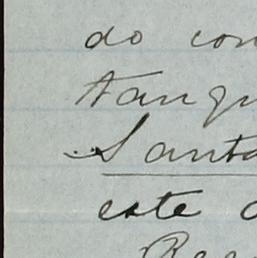 do con
tanqu
Santa
este